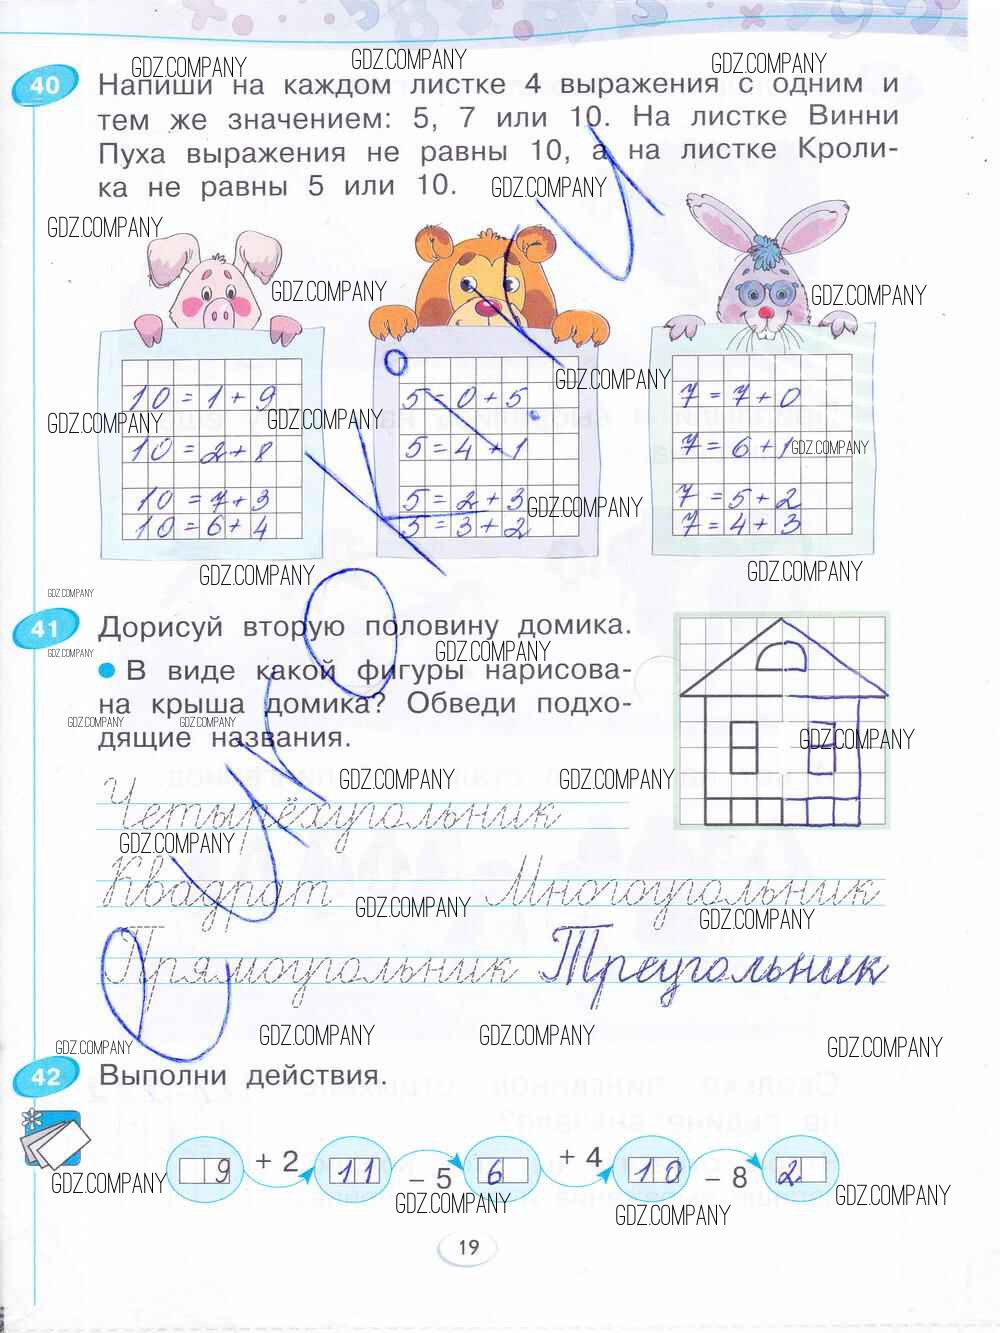 GDZ.COMPANY GDZ.COMPANY GDZ.COMPANY
40 Напиши на каждом листке 4 выражения с одним и
тем же значением: 5, 7 или 10. На листке Винни
Пуха выражения не равны 10, а на листке Кроли-
ка не равны 5 или 10.
GDZ.COMPANY
GDZ.COMPANY
GDZ.COMPANY GDZ.COMPANY
GDZ.COMPANY
10 = 1 + 9 5 = 0 + 5 7 = 7 + 0
GDZ.COMPANY GDZ.COMPANY
10 = 2 + 8 5 = 4 + 1 7 = 6 + 1 GDZ.COMPANY
10 = 7 + 3 5 = 2 + 3 7 = 5 + 2
GDZ.COMPANY
10 = 6 + 4 5 = 3 + 2 7 = 4 + 3
GDZ.COMPANY GDZ.COMPANY
GDZ.COMPANY
41 Дорисуй вторую половину домика.
GDZ.COMPANY GDZ.COMPANY
В виде какой фигуры нарисова-
на крыша домика? Обведи подхо-
GDZ.COMPANY GDZ.COMPANY
дящие названия.
GDZ.COMPANY
GDZ.COMPANY GDZ.COMPANY
Четырёхугольник
GDZ.COMPANY
Квадрат Многоугольник
GDZ.COMPANY GDZ.COMPANY
Прямоугольник Треугольник
GDZ.COMPANY GDZ.COMPANY GDZ.COMPANY GDZ.COMPANY
42 Выполни действия.
9 + 2 11 – 5 6 + 4 10 – 8 2
GDZ.COMPANY GDZ.COMPANY GDZ.COMPANY GDZ.COMPANY
19